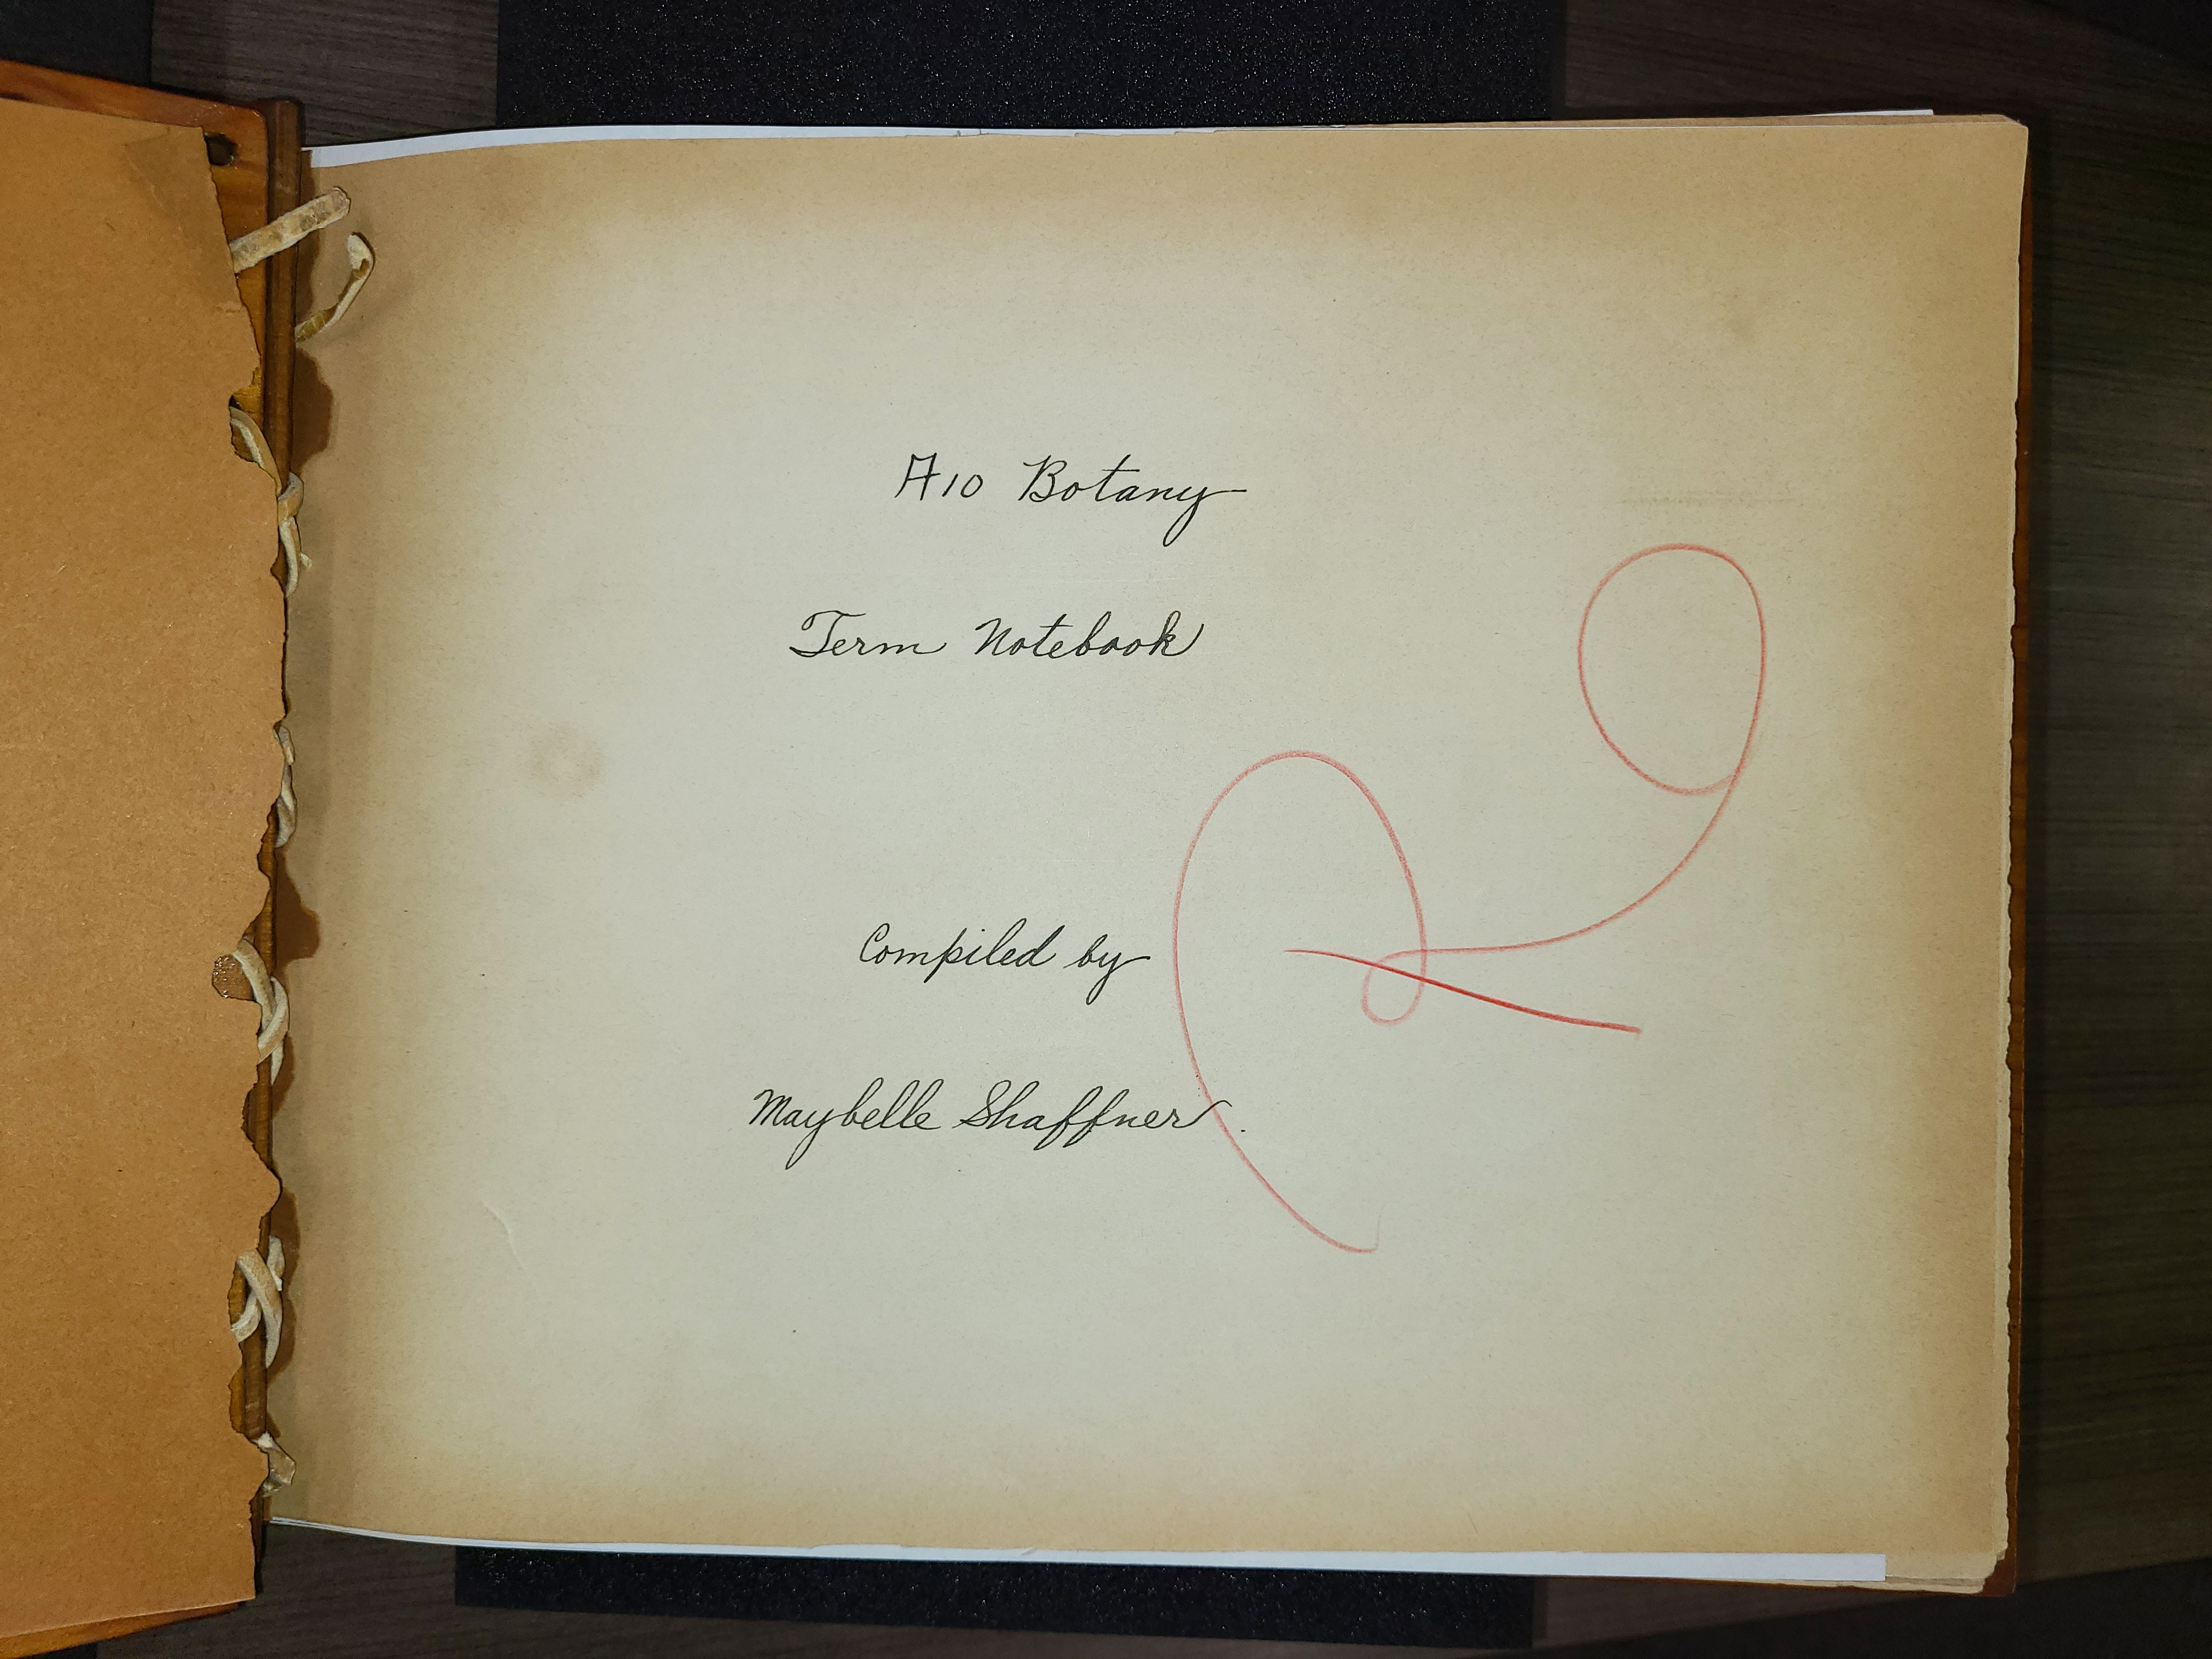 A10 Botany
Term Notebook
Compiled by
Maybelle Shaffner.